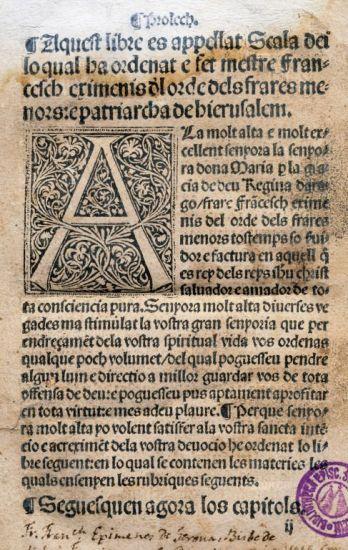 ¶ Prolech.
¶ Aquest libre es appellat Scala dei
lo qual ha ordenat e fet mestre Fran-
cesch eximenis dl orde dels frares me-
nors: e patriarcha de hierusalem.
A La molt alta e molt ex-
cellent senyora la senyo-
ra dona Maria p la gra
cia de deu Regina dara-
go/ frare Fräcesch exime
nis del orde dels frares
menors tostemps so ßui
dor e factura en aquell q̄
es rey dels reys ihu christ
saluador e amador de to-
ta consciencia pura. Senyora molt alta diuerses ve
gades ma stimulat la vostra gran senyoria que per
endreçamēt dela vostra spiritual vida vos ordenas
qualque poch volumet/ del qual poguesseu pendre
algun lum e directio a millor guardar vos de tota
offensa de deu: e poguesseu pus aptament aprofitar
en tota virtut: e mes a deu plaure. ¶ Per que senyo-
ra molt alta yo volent satisfer ala vostra sancta intē
cio e acreximēt dela vostra deuocio he ordenat lo li-
bre seguent: en lo qual se contenen les materies les
quals ensenyen les rubriques seguents.
¶ Seguesquen agora los capitols.
ij
Fr. Franch Eximenes de Gerona, Bisbe de